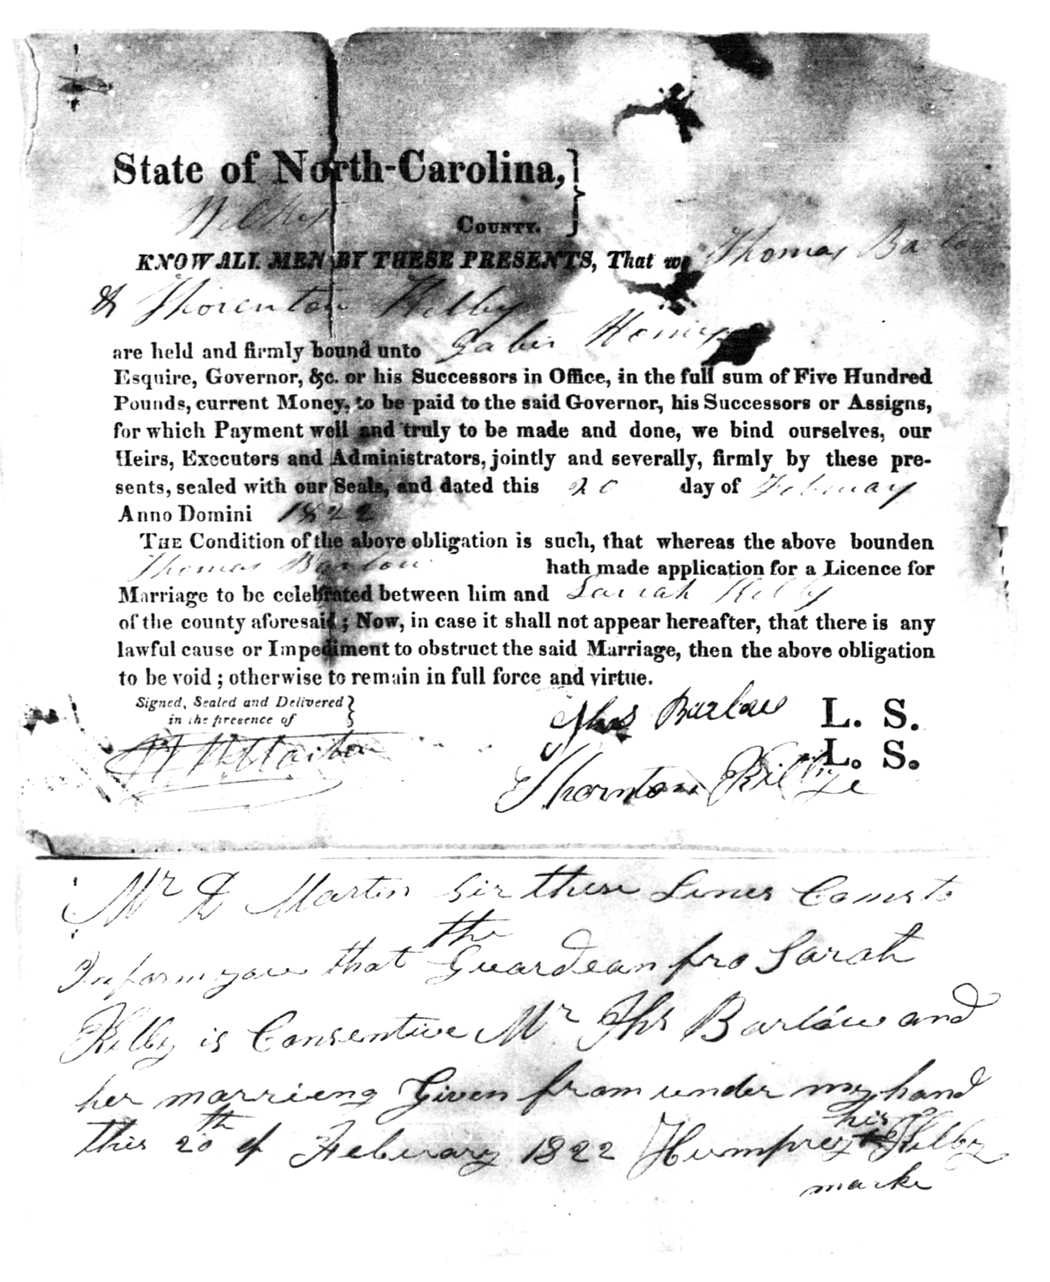 State of North-Carolina,
Wilkes County.
KNOW ALL MEN BY THESE PRESENTS, That we Thomas Barlow
& Thornton Kelby
are held and firmly bound unto
Esquire, Governor, &c. or his Successors in Office, in the full sum of Five Hundred
Pounds, current Money, to be paid to the said Governor, his Successors or Assigns,
for which Payment well and truly to be made and done, we bind ourselves, our
Heirs, Executors and Administrators, jointly and severally, firmly by these pre-
sents, sealed with our Seals, and dated this 20 day of February
Anno Domini 1822
THE Condition of the above obligation is such, that whereas the above bounden
Thomas Barlow hath made application for a Licence for
Marriage to be celebrated between him and Sariah Kelby
of the county aforesaid; Now, in case it shall not appear hereafter, that there is any
lawful cause or Impediment to obstruct the said Marriage, then the above obligation
to be void; otherwise to remain in full force and virtue.
Signed, Sealed and Delivered
in the presence of
Thos Barlow L. S.
Thornton Kilby L. S.
Mr D Martin Sir these Lines Coms to
Inform youe that the Guardean fro Sarah
Kelby is Consentive Mr Ths Barlow and
her marrieng Given from under my hand
this 20th of Feberary 1822 Humprey his Kilby
marke